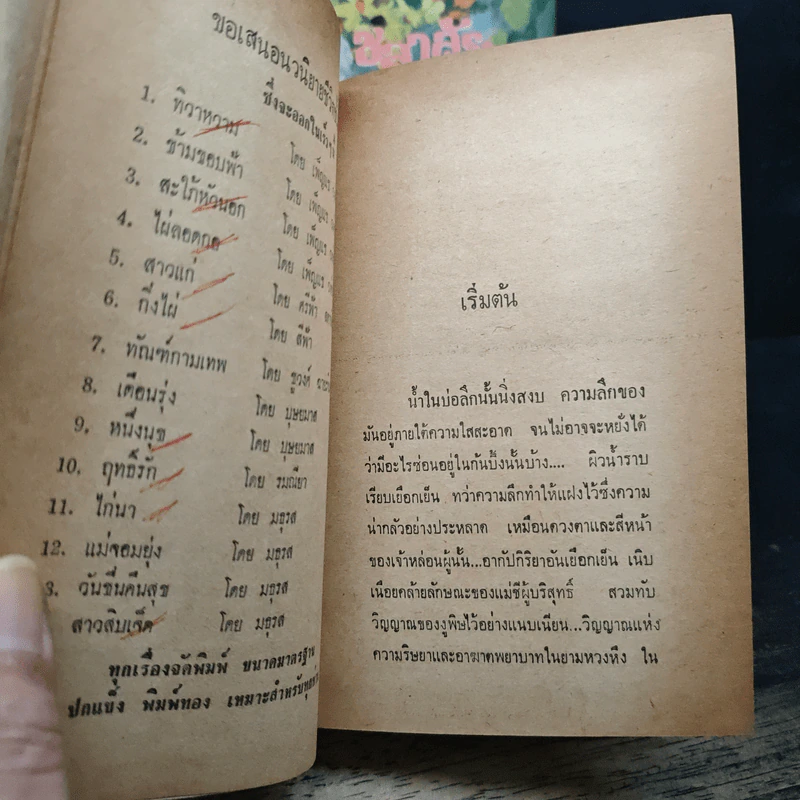 ขอเสนอนวนิยายชีวิต
ซึ่งจะออกในเร็วๆ
1. ทิวาหวาม โดย เพ็ญแข
2. ข้ามขอบฟ้า โดย เพ็ญแข
3. สะใภ้หัวนอก โดย เพ็ญแข
4. ไผ่ลอดกอ โดย เพ็ญแข
5. สาวแก่ โดย ศรีฟ้า
6. กิ่งไผ่ โดย สีฟ้า
7. ทัณฑ์กามเทพ โดย ชูวงศ์
8. เดือนรุ่ง โดย บุษยมาส
9. หนึ่งนุช โดย บุษยมาส
10. ฤทธิ์รัก โดย รมณียา
11. ไก่นา โดย มธุรส
12. แม่จอมยุ่ง โดย มธุรส
3. วันชื่นคืนสุข โดย มธุรส
สาวสิบเจ็ด โดย มธุรส
ทุกเรื่องจัดพิมพ์ ขนาดมาตรฐาน
ปกแข็ง พิมพ์ทอง เหมาะสำหรับทุก
เริ่มต้น
น้ำในบ่อลึกนั้นนิ่งสงบ ความลึกของ
มันอยู่ภายใต้ความใสสะอาด จนไม่อาจจะหยั่งได้
ว่ามีอะไรซ่อนอยู่ในก้นบึ้งนั้นบ้าง.... ผิวน้ำราบ
เรียบเยือกเย็น ทว่าความลึกทำให้แฝงไว้ซึ่งความ
น่ากลัวอย่างประหลาด เหมือนดวงตาและสีหน้า
ของเจ้าหล่อนผู้นั้น...อากัปกิริยาอันเยือกเย็น เนิบ
เนือยคล้ายลักษณะของแม่ชีผู้บริสุทธิ์ สวมทับ
วิญญาณของงูพิษไว้อย่างแนบเนียน...วิญญาณแห่ง
ความริษยาและอาฆาตพยาบาทในยามหวงหึง ใน